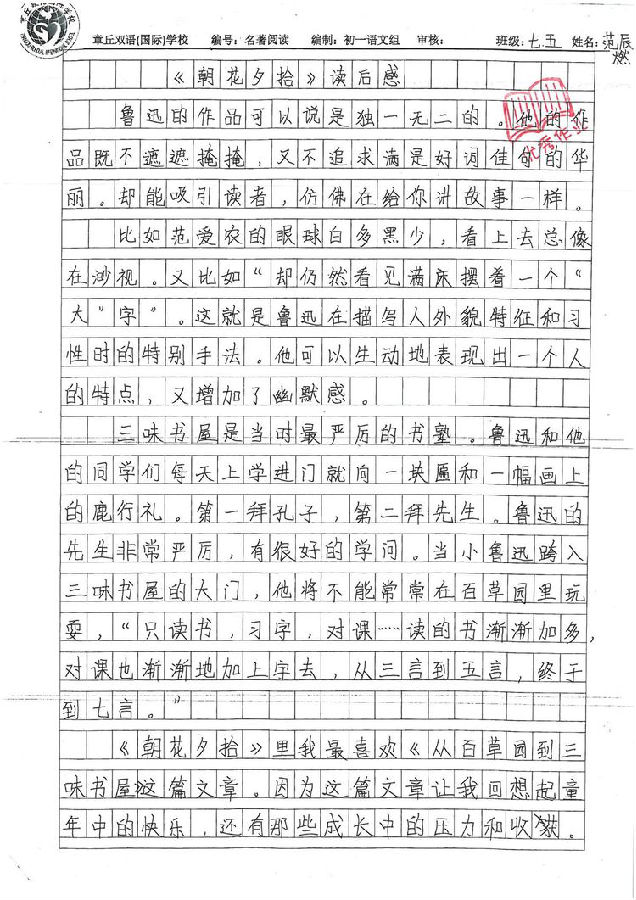 章丘双语(国际)学校 编号：名著阅读 编制：初一语文组 审核： 班级：七.五 姓名：范辰燃
《朝花夕拾》读后感
鲁迅的作品可以说是独一无二的。他的作
品既不遮遮掩掩，又不追求满是好词佳句的华
丽。却能吸引读者，仿佛在给你讲故事一样。
比如范爱农的眼球白多黑少，看上去总像
在渺视。又比如“却仍然看见满床摆着一个“
大”字”。这就是鲁迅在描写人外貌特征和习
性时的特别手法。他可以生动地表现出一个人
的特点，又增加了幽默感。
三味书屋是当时最严厉的书塾。鲁迅和他
的同学们每天上学进门就向一块匾和一幅画上
的鹿行礼。第一拜孔子，第二拜先生。鲁迅的
先生非常严厉，有很好的学问。当小鲁迅跨入
三味书屋的大门，他将不能常常在百草园里玩
耍，“只读书，习字，对课……读的书渐渐加多，
对课也渐渐地加上字去，从三言到五言，终于
到七言。”
《朝花夕拾》里我最喜欢《从百草园到三
味书屋》这篇文章。因为这篇文章让我回想起童
年中的快乐，还有那些成长中的压力和收获。
优秀作业